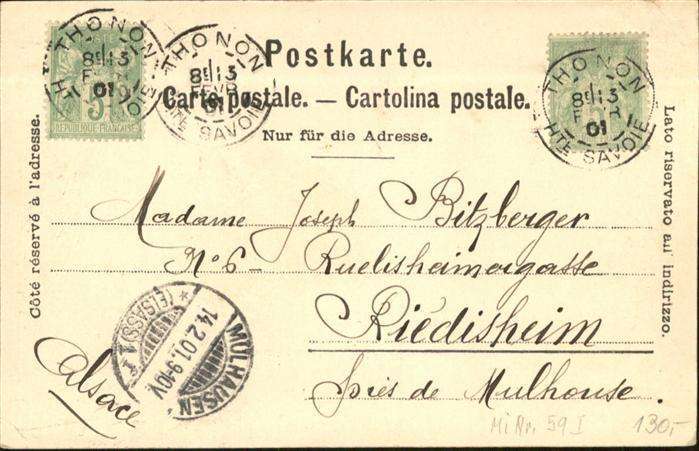 Postkarte.
Carte postale. — Cartolina postale.
Nur für die Adresse.
Côté réservé à l'adresse.
Lato riservato all indirizzo.
THONON
8E 13
FEVR
01
HTE SAVOIE
THONON
8E 13
FEVR
01
HTE SAVOIE
THONON
8E 13
FEVR
01
HTE SAVOIE
REPUBLIQUE FRANÇAISE
Madame Joseph Bitzberger
No 6 - Ruelisheimergasse
Riedisheim
près de Mulhouse.
Alsace
MÜLHAUSEN
14.2.01. 9-10V.
* (ELSASS) 1 f
Mi Nr. 59 I
130,-